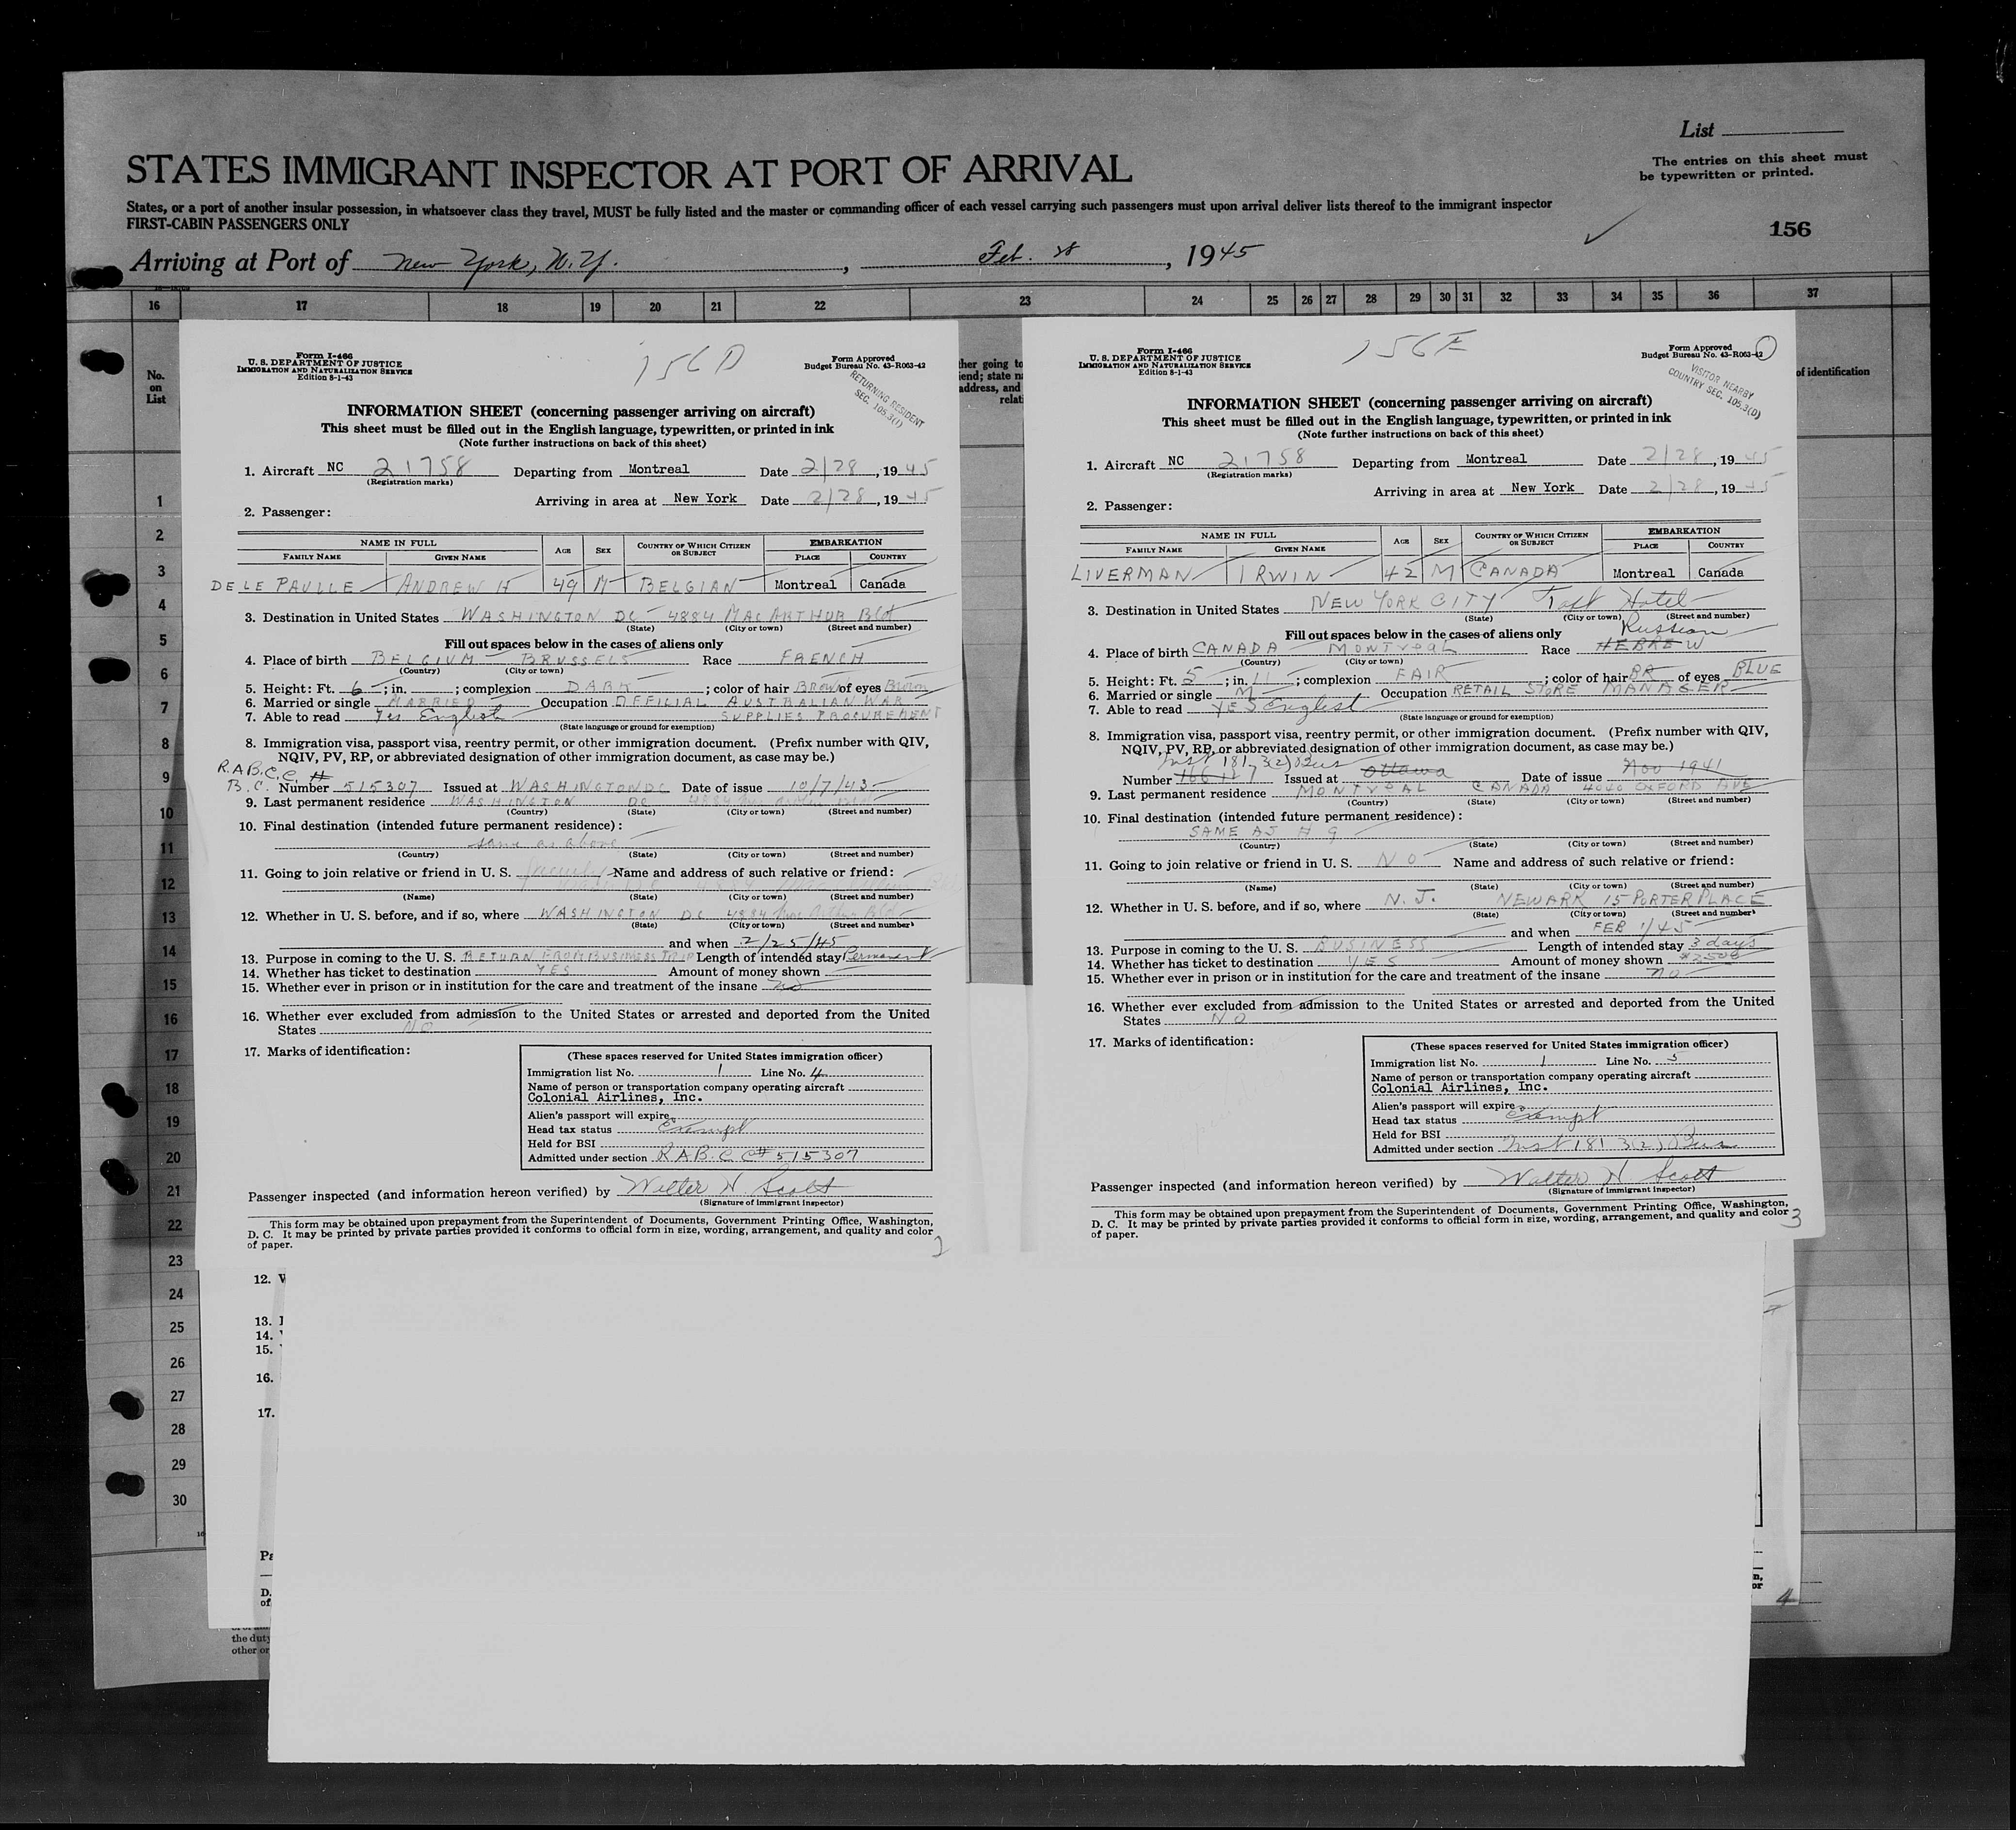 List
The entries on this sheet must
be typewritten or printed.
STATES IMMIGRANT INSPECTOR AT PORT OF ARRIVAL
States, or a port of another insular possession, in whatsoever class they travel, MUST be fully listed and the master or commanding officer of each vessel carrying such passengers must upon arrival deliver lists thereof to the immigrant inspector
FIRST-CABIN PASSENGERS ONLY
156
Arriving at Port of New York, N.Y. , Feb. 28 , 1945
16 17 18 19 20 21 22 23 24 25 26 27 28 29 30 31 32 33 34 35 36 37
No.
on
List
ther going to
iend; state n
address, and
relat
of identification
1
2
3
4
5
6
7
8
9
10
11
12
13
14
15
16
17
18
19
20
21
22
23
24
25
26
27
28
29
30
Form I-466
U. S. DEPARTMENT OF JUSTICE
IMMIGRATION AND NATURALIZATION SERVICE
Edition 8-1-43
156D
Form Approved
Budget Bureau No. 43-R063-42
RETURNING RESIDENT
SEC. 105.3(1)
INFORMATION SHEET (concerning passenger arriving on aircraft)
This sheet must be filled out in the English language, typewritten, or printed in ink
(Note further instructions on back of this sheet)
1. Aircraft NC 21758 Departing from Montreal Date 2/28, 1945
(Registration marks)
Arriving in area at New York Date 2/28, 1945
2. Passenger:
NAME IN FULL AGE SEX COUNTRY OF WHICH CITIZEN OR SUBJECT EMBARKATION
FAMILY NAME GIVEN NAME PLACE COUNTRY
DE LE PAULLE ANDREW H 49 M BELGIAN Montreal Canada
3. Destination in United States WASHINGTON DC 4884 MACARTHUR Bld
(State) (City or town) (Street and number)
Fill out spaces below in the cases of aliens only
4. Place of birth BELGIUM BRUSSELS Race FRENCH
(Country) (City or town)
5. Height: Ft. 6; in. ; complexion DARK ; color of hair BROWN of eyes Brown
6. Married or single MARRIED Occupation OFFICIAL AUSTRALIAN WAR
7. Able to read Yes English SUPPLIES PROCUREMENT
(State language or ground for exemption)
8. Immigration visa, passport visa, reentry permit, or other immigration document. (Prefix number with QIV,
NQIV, PV, RP, or abbreviated designation of other immigration document, as case may be.)
R.A.B.C.C. #
B.C. Number 515307 Issued at WASHINGTON DC Date of issue 10/7/43
9. Last permanent residence WASHINGTON DC 4884 Mac Arthur Bld
(Country) (State) (City or town) (Street and number)
10. Final destination (intended future permanent residence):
same as above
(Country) (State) (City or town) (Street and number)
11. Going to join relative or friend in U. S. Name and address of such relative or friend:
(Name) (State) (City or town) (Street and number)
12. Whether in U. S. before, and if so, where WASHINGTON DC 4884 Mac Arthur Bld
(State) (City or town) (Street and number)
and when 2/25/45
13. Purpose in coming to the U. S. RETURN FROM BUSINESS TRIP Length of intended stay Permanent
14. Whether has ticket to destination YES Amount of money shown
15. Whether ever in prison or in institution for the care and treatment of the insane no
16. Whether ever excluded from admission to the United States or arrested and deported from the United
States NO
17. Marks of identification:
(These spaces reserved for United States immigration officer)
Immigration list No. 1 Line No. 4
Name of person or transportation company operating aircraft
Colonial Airlines, Inc.
Alien's passport will expire
Head tax status Exempt
Held for BSI
Admitted under section RABCC # 515307
Passenger inspected (and information hereon verified) by Walter N Scott
(Signature of immigrant inspector)
This form may be obtained upon prepayment from the Superintendent of Documents, Government Printing Office, Washington,
D. C. It may be printed by private parties provided it conforms to official form in size, wording, arrangement, and quality and color
of paper.
2
Form I-466
U. S. DEPARTMENT OF JUSTICE
IMMIGRATION AND NATURALIZATION SERVICE
Edition 8-1-43
156E
Form Approved
Budget Bureau No. 43-R063-42
VISITOR NEARBY
COUNTRY SEC. 105.3(D)
INFORMATION SHEET (concerning passenger arriving on aircraft)
This sheet must be filled out in the English language, typewritten, or printed in ink
(Note further instructions on back of this sheet)
1. Aircraft NC 21758 Departing from Montreal Date 2/28, 1945
(Registration marks)
Arriving in area at New York Date 2/28, 1945
2. Passenger:
NAME IN FULL AGE SEX COUNTRY OF WHICH CITIZEN OR SUBJECT EMBARKATION
FAMILY NAME GIVEN NAME PLACE COUNTRY
LIVERMAN IRWIN 42 M CANADA Montreal Canada
3. Destination in United States NEW YORK CITY Taft Hotel
(State) (City or town) (Street and number)
Fill out spaces below in the cases of aliens only Russian
4. Place of birth CANADA MONTREAL Race HEBREW
(Country) (City or town)
5. Height: Ft. 5; in. 11; complexion FAIR ; color of hair BR of eyes BLUE
6. Married or single M Occupation RETAIL STORE MANAGER
7. Able to read YES English
(State language or ground for exemption)
8. Immigration visa, passport visa, reentry permit, or other immigration document. (Prefix number with QIV,
NQIV, PV, RP, or abbreviated designation of other immigration document, as case may be.)
Inst 181 3(2) Bus
Number Issued at Ottawa Date of issue Nov 1941
9. Last permanent residence MONTREAL CANADA 4040 OXFORD AVE
(Country) (State) (City or town) (Street and number)
10. Final destination (intended future permanent residence):
SAME AS # 9
(Country) (State) (City or town) (Street and number)
11. Going to join relative or friend in U. S. NO Name and address of such relative or friend:
(Name) (State) (City or town) (Street and number)
12. Whether in U. S. before, and if so, where N. J. NEWARK 15 PORTER PLACE
(State) (City or town) (Street and number)
and when FEB 1/45
13. Purpose in coming to the U. S. BUSINESS Length of intended stay 3 days
14. Whether has ticket to destination YES Amount of money shown
15. Whether ever in prison or in institution for the care and treatment of the insane NO
16. Whether ever excluded from admission to the United States or arrested and deported from the United
States NO
17. Marks of identification:
(These spaces reserved for United States immigration officer)
Immigration list No. 1 Line No. 5
Name of person or transportation company operating aircraft
Colonial Airlines, Inc.
Alien's passport will expire
Head tax status Exempt
Held for BSI
Admitted under section Inst 181 3(2) Bus
Passenger inspected (and information hereon verified) by Walter N Scott
(Signature of immigrant inspector)
This form may be obtained upon prepayment from the Superintendent of Documents, Government Printing Office, Washington,
D. C. It may be printed by private parties provided it conforms to official form in size, wording, arrangement, and quality and color
of paper.
3
12.
13.
14.
15.
16.
17.
Pa
D.
of
the duty
other or
n,
or
4